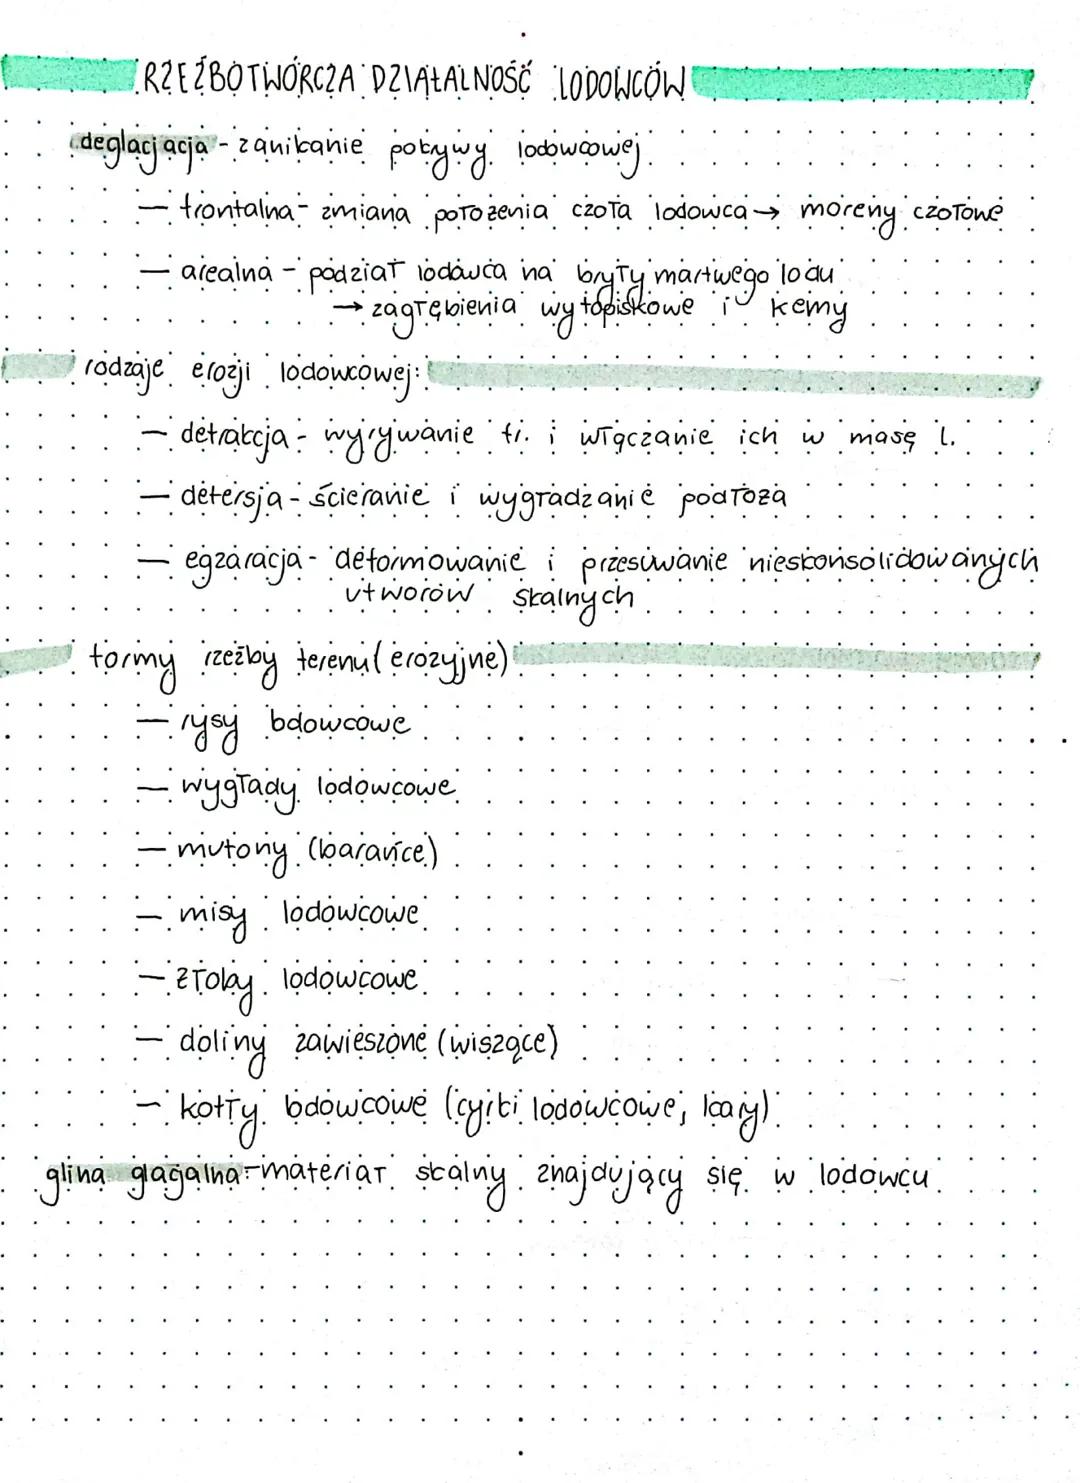 RZEŹBOTWÓRCZA DZIAŁALNOŚĆ LODOWCÓW
deglacjacja - zanikanie pokrywy lodowcowej
— frontalna - zmiana położenia czoła lodowca → moreny czołowe
— arealna - podział lodowca na bryły martwego lodu
→ zagłębienia wytopiskowe i kemy
rodzaje erozji lodowcowej:
— detrakcja - wyrywanie fr. i włączanie ich w masę l.
— detersja - ścieranie i wygładzanie podłoża
— egzaracja - deformowanie i przesuwanie nieskonsolidowanych
utworów skalnych
formy rzeźby terenu (erozyjne)
— rysy lodowcowe
— wygłady lodowcowe
— mutony (barańce)
— misy lodowcowe
— żłoby lodowcowe
— doliny zawieszone (wiszące)
— kotły lodowcowe (cyrki lodowcowe, kary)
glina glacjalna - materiał skalny znajdujący się w lodowcu